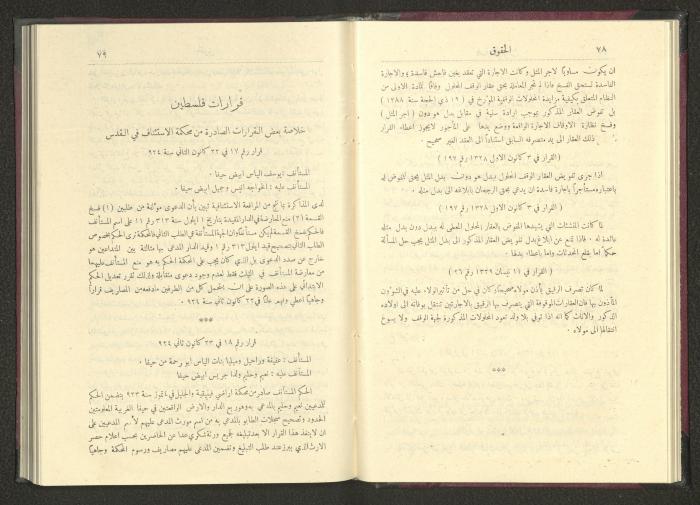 ٧٨
الحقوق
ان يكون مساويًا لاجر المثل وكانت الاجارة التي تعقد بغبن فاحش فاسدة والاجارة
الفاسدة تستحق الفسخ فاذا لم تجر المعاملة بحق عقار الوقف المحلول وفاقًا للمادة الاولى من
النظام المتعلق بكيفية مزايدة المحلولات الوقفية المؤرخ في (١٩ ذي الحجة سنة ١٢٨٨)
بل تفوض العقار المذكور بموجب ارادة سنية في مقابل بدل هو دون (اجر المثل)
وفسخ نظارة الاوقاف الاجارة الواقعة ووضع يدها على المأجور لايجوز اعطاء القرار
ذلك العقار الى يد متصرفه السابق استنادًا الى العقد الغير صحيح .
(القرار في ٣ كانون الاول ١٣٢٨ رقم ١٩٧)
اذا جرى تفويض العقار الوقف المحلول ببدل هو دون بدل المثل يحق للمفوض له
باعتباره مستأجرًا باجارة فاسدة ان يدعي بحق الرجحان بابلاغه الى بدل مثله .
(القرار في ٣ كانون الاول ١٣٢٨ رقم ١٩٧)
لما كانت المنشئات التي يشيدها المفوض بالعقار المحلول المعطى له ببدل دون بدل مثله
عائدة له . فاذا تمنع عن ابلاغ بدل تفويض العقار المذكور الى بدل المثل يجب حل المسألة
حكمًا اما بقلع المحدثات واما باعطاء بدلها .
(القرار في ١١ نيسان ١٣٢٩ رقم ٢٦)
لما كان تصرف الرقيق باذن مولاه صحيحًا وكان في حل من تأثير الولاء عليه في الشؤون
المأذون بها فان العقارات الموقوفة التي يتصرف بها الرقيق بالاجارتين تنتقل بوفاته الى اولاده
الذكور والاناث كما انه اذا توفي بلا ولد تعود المحلولات المذكورة لجهة الوقف ولا يسوغ
انتقالها الى مولاه .
***
٧٩
قرارات فلسطين
خلاصة بعض القرارات الصادرة من محكمة الاستئناف في القدس
قرار رقم ١٧ في ٢٢ كانون الثاني سنة ٩٢٤
المستأنف : يوسف الياس ابيض حيفا .
المستأنف عليه : الخواجه انيس وجميل ابيض حيفا .
لدى المذاكرة ناتج من المرافعة الاستئنافية تبين بأن الدعوى مؤلفة من طلبين (١) فسخ
القسمة (٢) منع المعارضة في الدار المقيدة بتاريخ ١ ايلول سنة ٣١٣ رقم ١
خارج عن صدد الدعوى بل الذي كان يجب على المحكمة الحكم به هو منع المستأنف عليهما
من معارضة المستأنف في الثلث فقط لعدم وجود دعوى متقابلة ولذلك تقرر تعديل الحكم
الابتدائي على هذه الصورة على ان يتحمل كل من الطرفين مادفعه من المصاريف قرارًا
وجاهيًا اعطي وافهم علنًا في ٢٢ كانون ثاني سنة ٩٢٤ .
***
قرار رقم ١٨ في ٢٣ كانون ثاني ٩٢٤
المستأنف : عفيفة وراحيل وميليا بنات الياس ابو رحمة من حيفا .
المستأنف عليه : نعيم وحليم ولدا جريس ابيض حيفا
الحكم المستأنف صادر من محكمة اراضي فينيقية والجليل في تموز سنة ٩٢٣ بتضمن الحكم
للمدعيين نعيم وحليم بالمدعى به وهو ربع الدار والارض الواقعتين في حيفا الغربية المعلومتين
الحدود وتصحيح سجلات الطابو بالمدعى به من اسم مورث المدعى عليهم لاسم المدعيين على
ان لاينفذ هذا القرار الا بعد تبليغه لجميع ورثة شكري عدا عن الحاضرين بحسب اعلام حصر
الارث الذي يبرز عند طلب التبليغ وتضمين المدعى عليهم مصاريف ورسوم المحكمة وجاهيًا